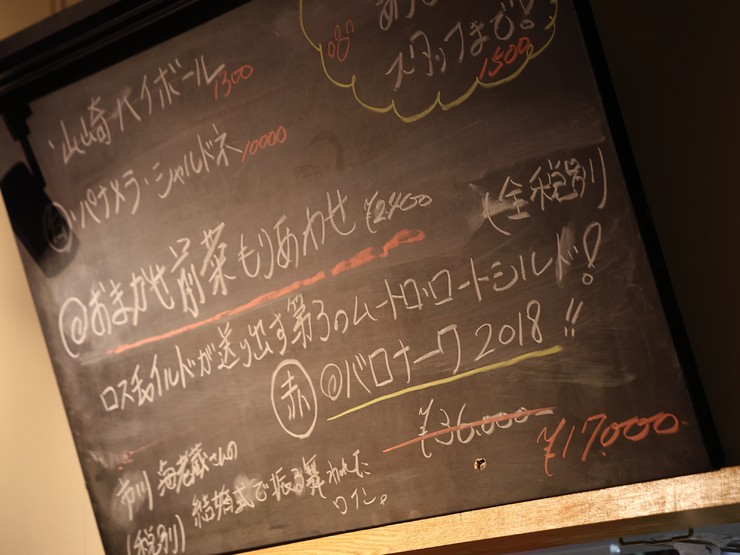 スタッフまで!
1500
・山崎ハイボール 1300
・パナメラ・シャルドネ 10000
@おまかせ前菜もりあわせ ¥2400
(全税別)
ロス チャイルドが送り出す第3のムートロ・ロートシルド!
赤 @バロナーク2018!!
¥36.000
¥17.000
市川海老蔵さんの
(税別) 結婚式で振る舞われた
ワイン。